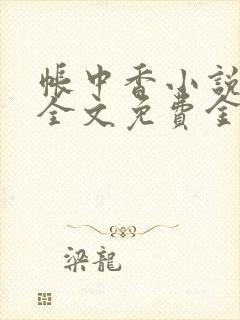 帳中香小說
全文免費全
梁龍